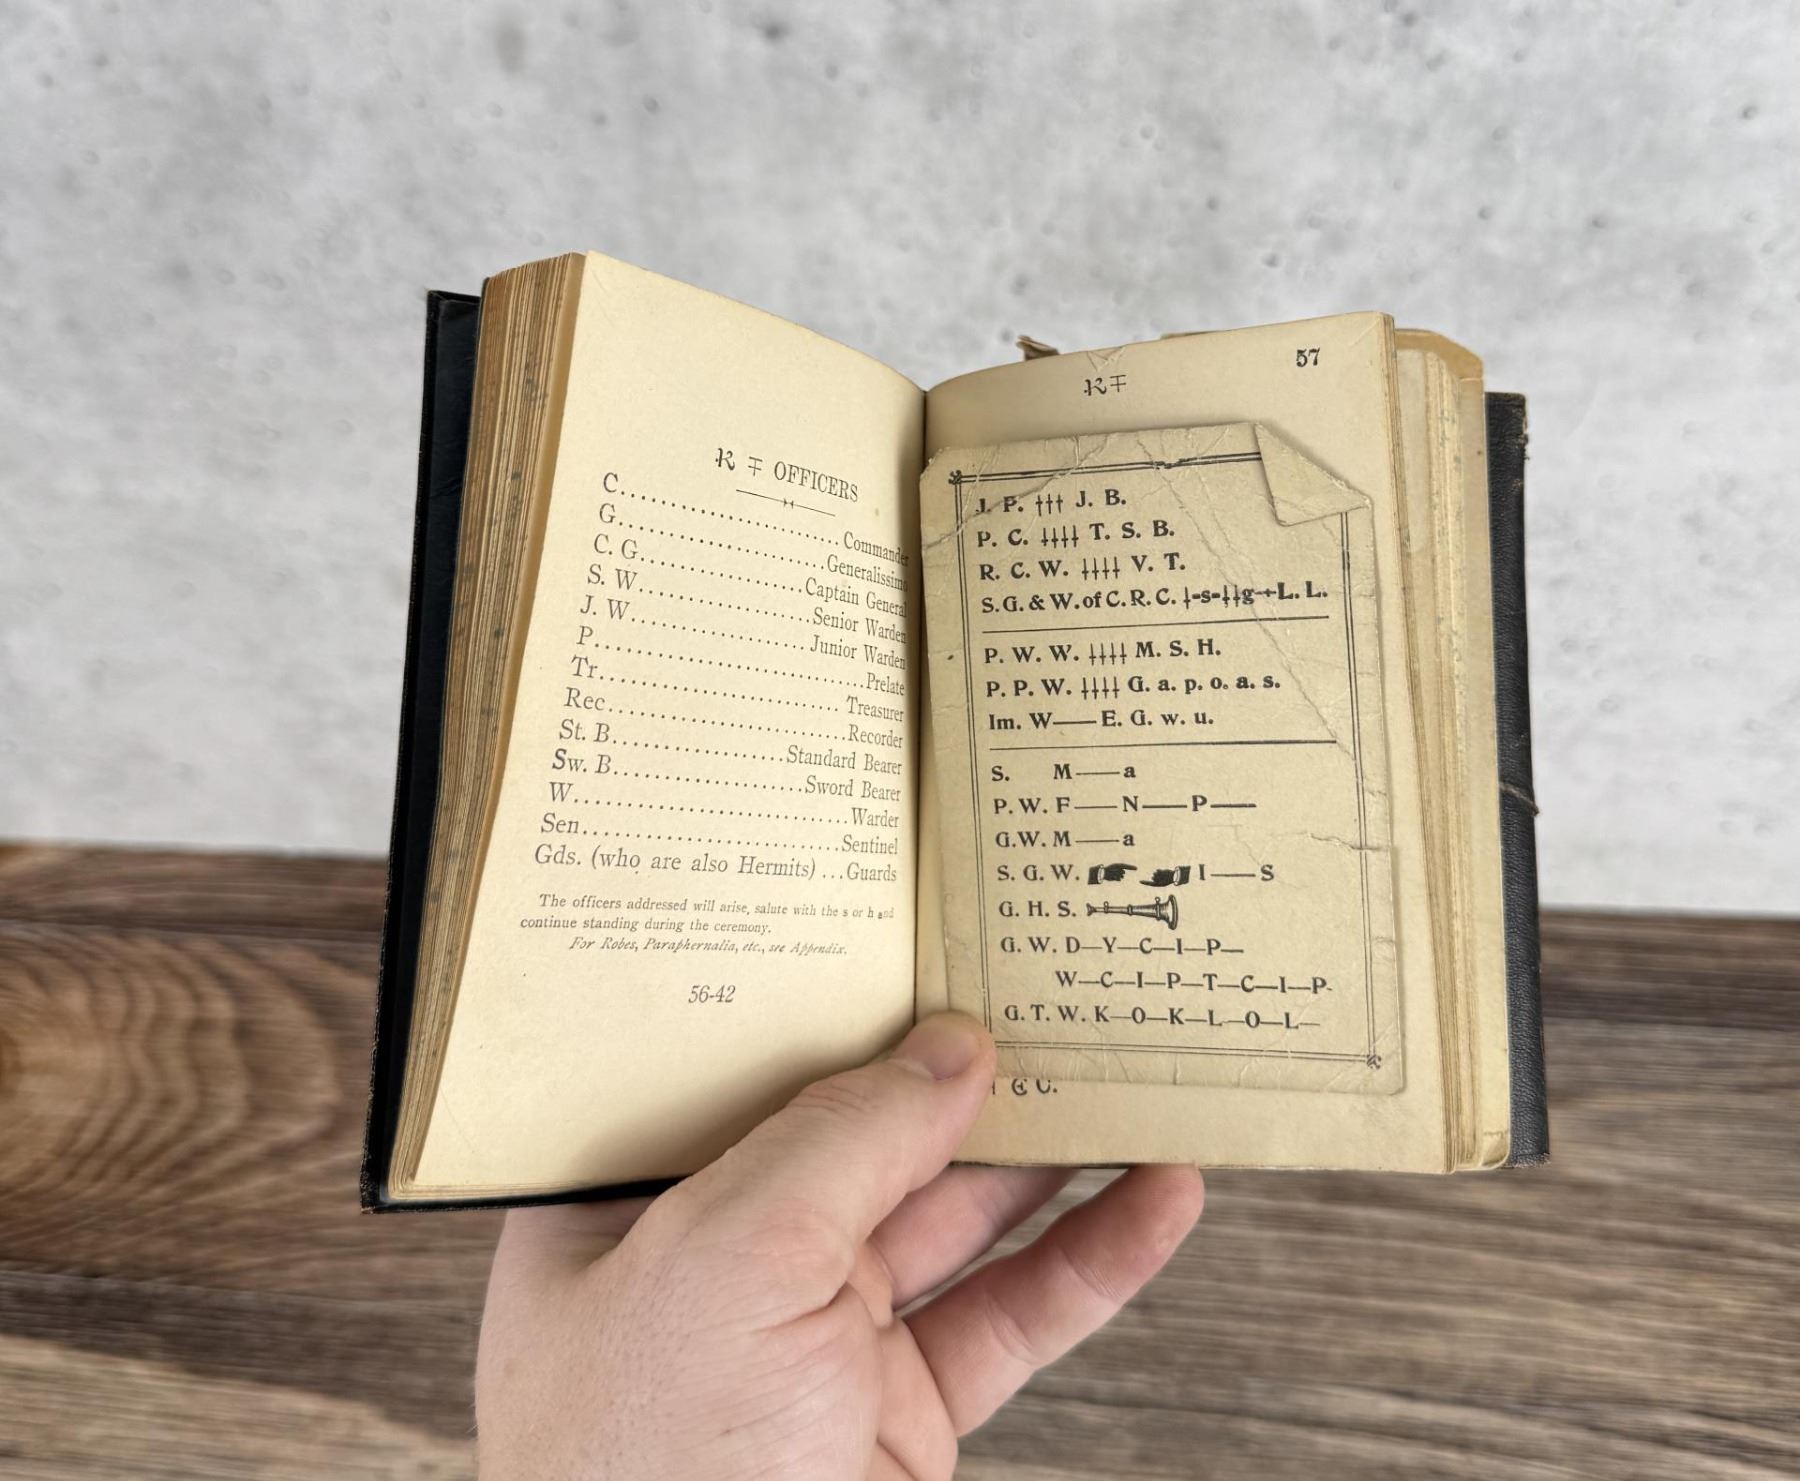 K T OFFICERS
C....................Commander
G....................Generalissimo
C. G....................Captain General
S. W....................Senior Warden
J. W....................Junior Warden
P....................Prelate
Tr....................Treasurer
Rec....................Recorder
St. B....................Standard Bearer
Sw. B....................Sword Bearer
W....................Warder
Sen....................Sentinel
Gds. (who are also Hermits) ...Guards
The officers addressed will arise, salute with the s or h and
continue standing during the ceremony.
For Robes, Paraphernalia, etc., see Appendix.
56-42
57
K T
J. P. ††† J. B.
P. C. ‡††‡ T. S. B.
R. C. W. ‡††‡ V. T.
S. G. & W. of C. R. C. ‡-s-‡‡g-+L. L.
P. W. W. ‡‡‡‡ M. S. H.
P. P. W. ‡‡‡‡ G. a. p. o. a. s.
Im. W—— E. G. w. u.
S. M——a
P. W. F——N——P——
G. W. M——a
S. G. W. I——S
G. H. S.
G. W. D—Y—C—I—P—
W—C—I—P—T—C—I—P-
G. T. W. K—O—K—L—O—L—
C.